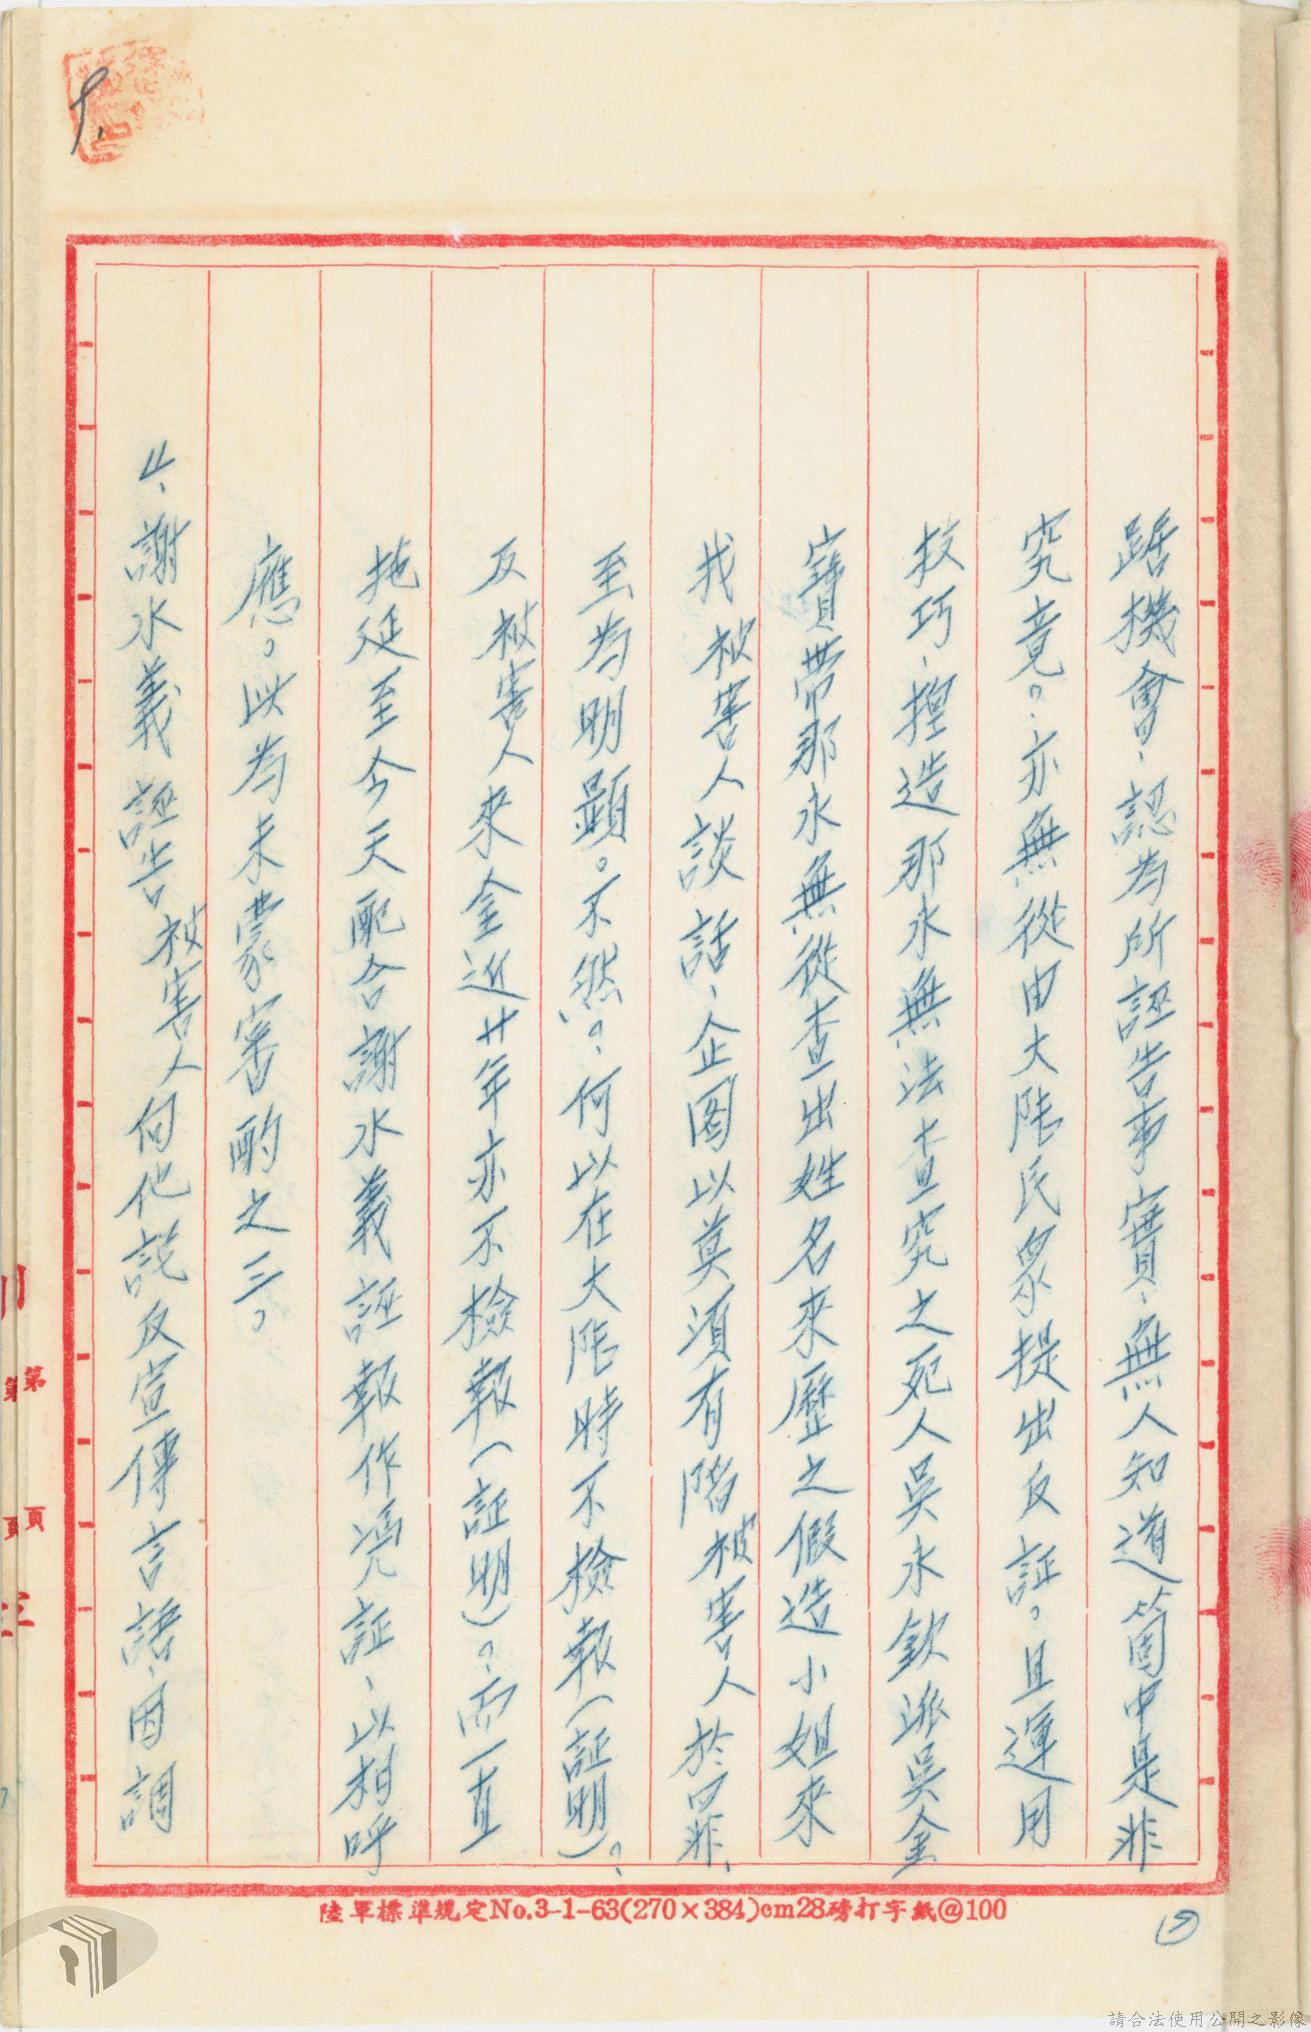 踞機會、認為所誣告事實、無人知道箇中是非
究竟。亦無從由大陸民眾提出反証。且運用
技巧、揑造那永無法查究之死人吳永欽派吳金
寶帶那永無從查出姓名來歷之假造小姐來
找被害人談話、企图以莫須有陷被害人於罪、
至為明顯。不然。何以在大陸時不檢報(証明)。
反被害人來金近廿年亦不檢報(証明)。而一直
拖延至今天配合謝水義誣報作憑証、以相呼
應。以為未蒙審酌之三。
4、謝水義誣告被害人向他說反宣傳言語、因調
陸軍標準規定No.3-1-63(270×384)cm28磅打字紙@100
9
第 頁
請合法使用公開之影像